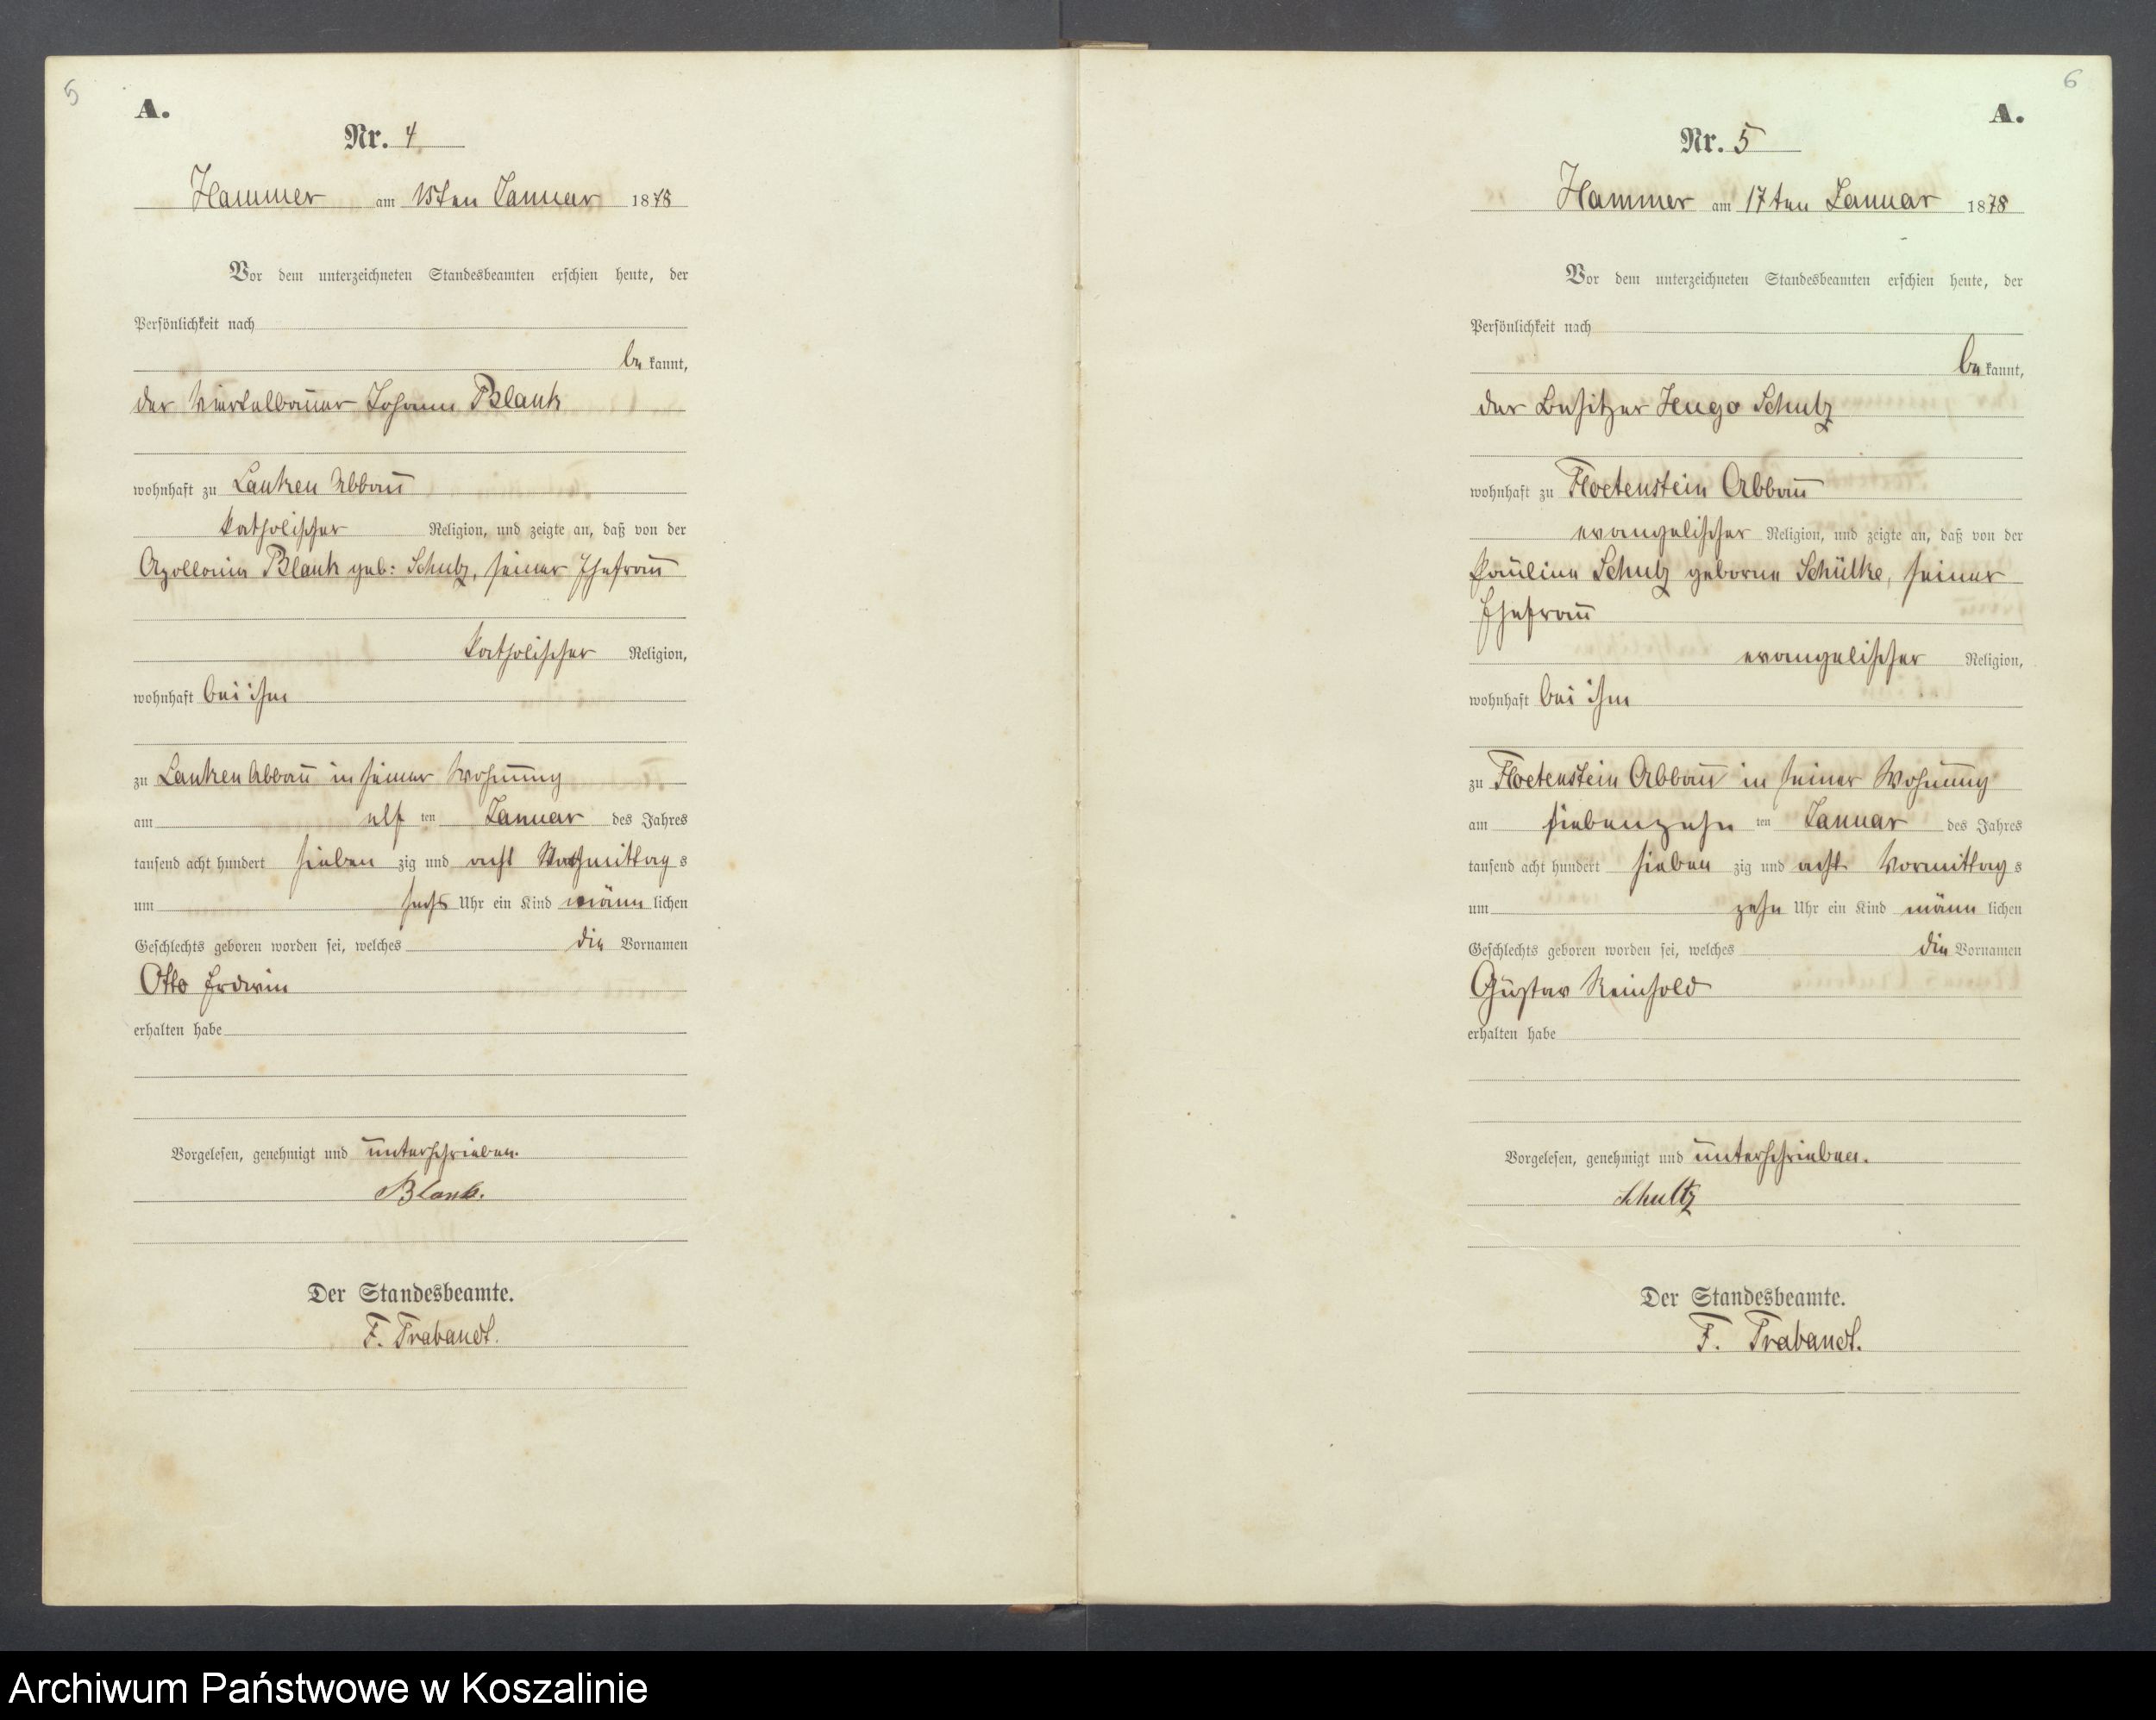 5
A.
Nr. 4
Hammer am 15ten Januar 1878
Vor dem unterzeichneten Standesbeamten erschien heute, der
Persönlichkeit nach
be kannt,
der Viertelbauer Johann Blank
wohnhaft zu Lanken Abbau
katholischer Religion, und zeigte an, daß von der
Apollonia Blank geb: Schulz, seiner Ehefrau
katholischer Religion,
wohnhaft bei ihm
zu Lanken Abbau in seiner Wohnung
am elf ten Januar des Jahres
tausend acht hundert sieben zig und acht Nachmittag s
um sechs Uhr ein Kind männ lichen
Geschlechts geboren worden sei, welches die Vornamen
Otto Erdwin
erhalten habe
Vorgelesen, genehmigt und unterschrieben.
Blank.
Der Standesbeamte.
F. Trabandt.
6
A.
Nr. 5
Hammer am 17ten Januar 1878
Vor dem unterzeichneten Standesbeamten erschien heute, der
Persönlichkeit nach
be kannt,
der Besitzer Hugo Schulz
wohnhaft zu Floetenstein Abbau
evangelischer Religion, und zeigte an, daß von der
Pauline Schulz geborne Schülke, seiner
Ehefrau
evangelischer Religion,
wohnhaft bei ihm
zu Floetenstein Abbau in seiner Wohnung
am siebenzehn ten Januar des Jahres
tausend acht hundert sieben zig und acht Vormittag s
um zehn Uhr ein Kind männ lichen
Geschlechts geboren worden sei, welches die Vornamen
Gustav Reinhold
erhalten habe
Vorgelesen, genehmigt und unterschrieben.
Schultz
Der Standesbeamte.
F. Trabandt.
Archiwum Państwowe w Koszalinie